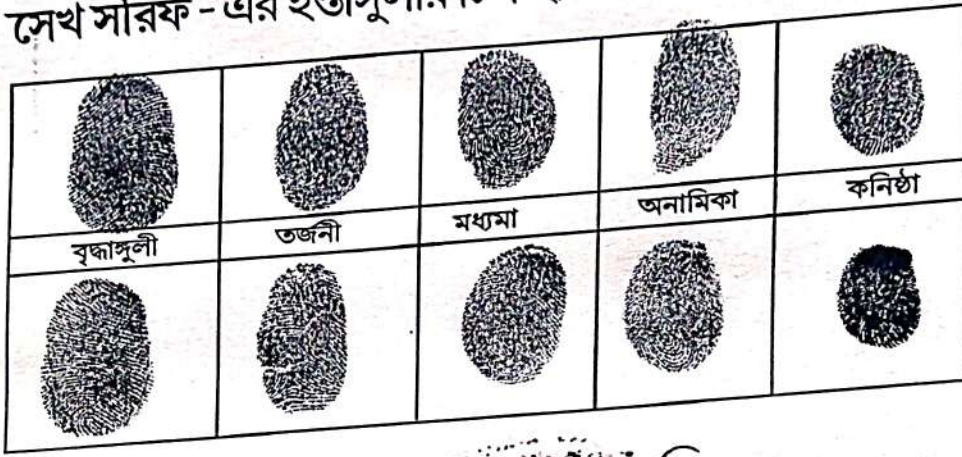 সেখ সরিফ - এর
বৃদ্ধাঙ্গুলী তর্জনী মধ্যমা অনামিকা কনিষ্ঠা